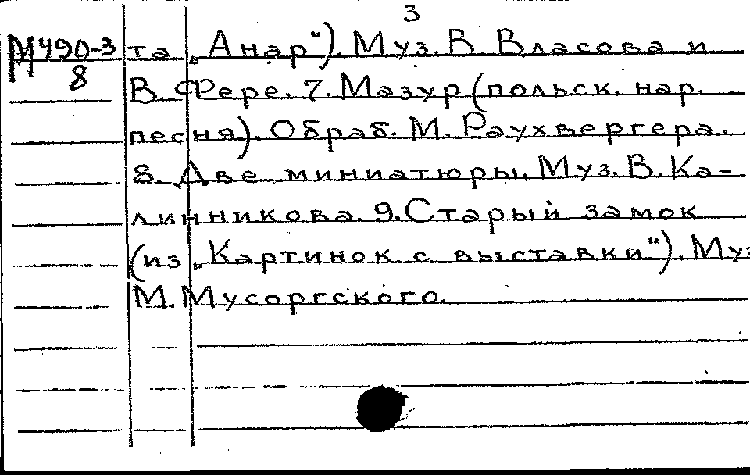 3
М490-3 та „Анар“). Муз. В. Власова и
8 В. Фере. 7. Мазур (польск. нар.
песня). Обраб. М. Раухвергера.
8. Две миниатюры. Муз. В. Ка-
линникова. 9. Старый замок
(из „Картинок с выставки“). Муз
М. Мусоргского.